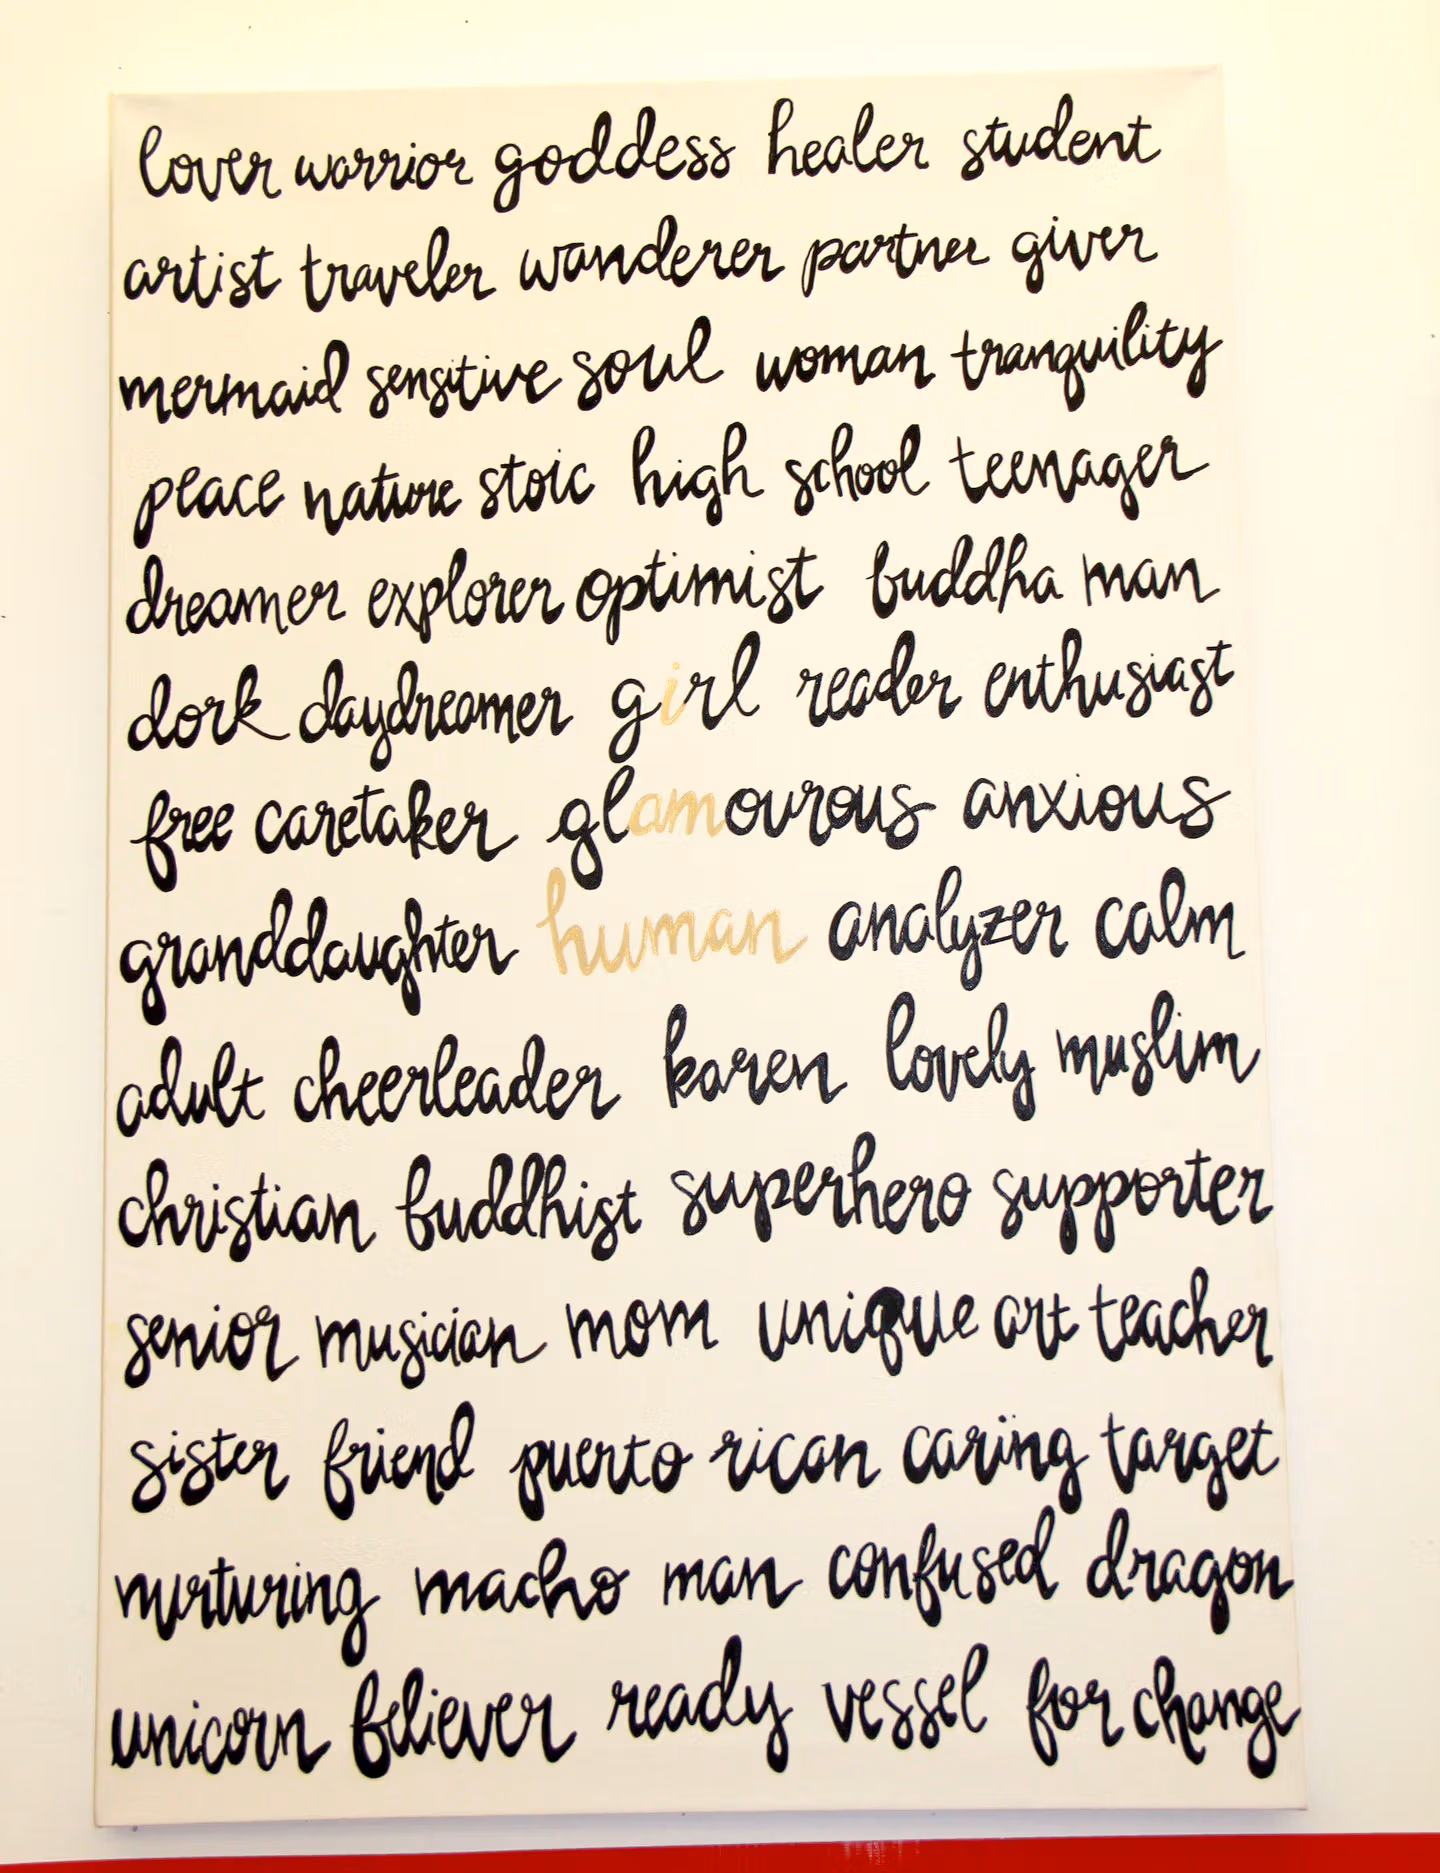 lover warrior goddess healer student
artist traveler wanderer partner giver
mermaid sensitive soul woman tranquility
peace nature stoic high school teenager
dreamer explorer optimist buddha man
dork daydreamer girl reader enthusiast
free caretaker glamourous anxious
granddaughter human analyzer calm
adult cheerleader karen lovely muslim
christian buddhist superhero supporter
senior musician mom unique art teacher
sister friend puerto rican caring target
nurturing macho man confused dragon
unicorn believer ready vessel for change